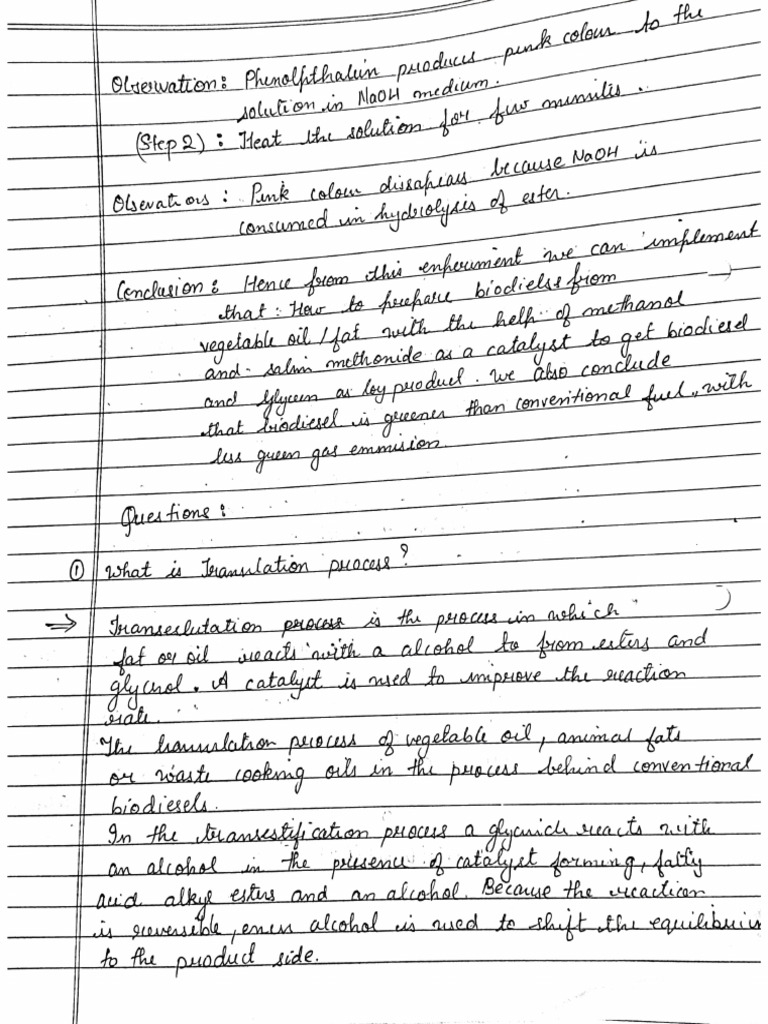 Observation: Phenolpthalein produces pink colour to the
solution in NaOH medium.
(Step 2): Heat the solution for few minutes.
Obsevations: Pink colour dissapears because NaOH is
consumed in hydrolysis of ester.
Conclusion: Hence from this experiment we can implement
that: How to prepare biodiels from
vegetable oil/fat with the help of methanol
and methonide as a catalyst to get biodiesel
and as by product. We also conclude
that biodiesel is greener than conventional fuel, with
less green gas emmision.
Questions:
① What is process?
⇒ process is the process in which
fat or oil reacts with a alcohol to from esters and
glycerol. A catalyst is used to improve the reaction
rate.
The process of vegetable oil, animal fats
or waste cooking oils in the process behind conventional
biodiesels.
In the transestification process a reacts with
an alcohol in the presence of catalyst forming, fatty
acid alkyl esters and an alcohol. Because the reaction
is reversible, alcohol is used to shift the
to the product side.